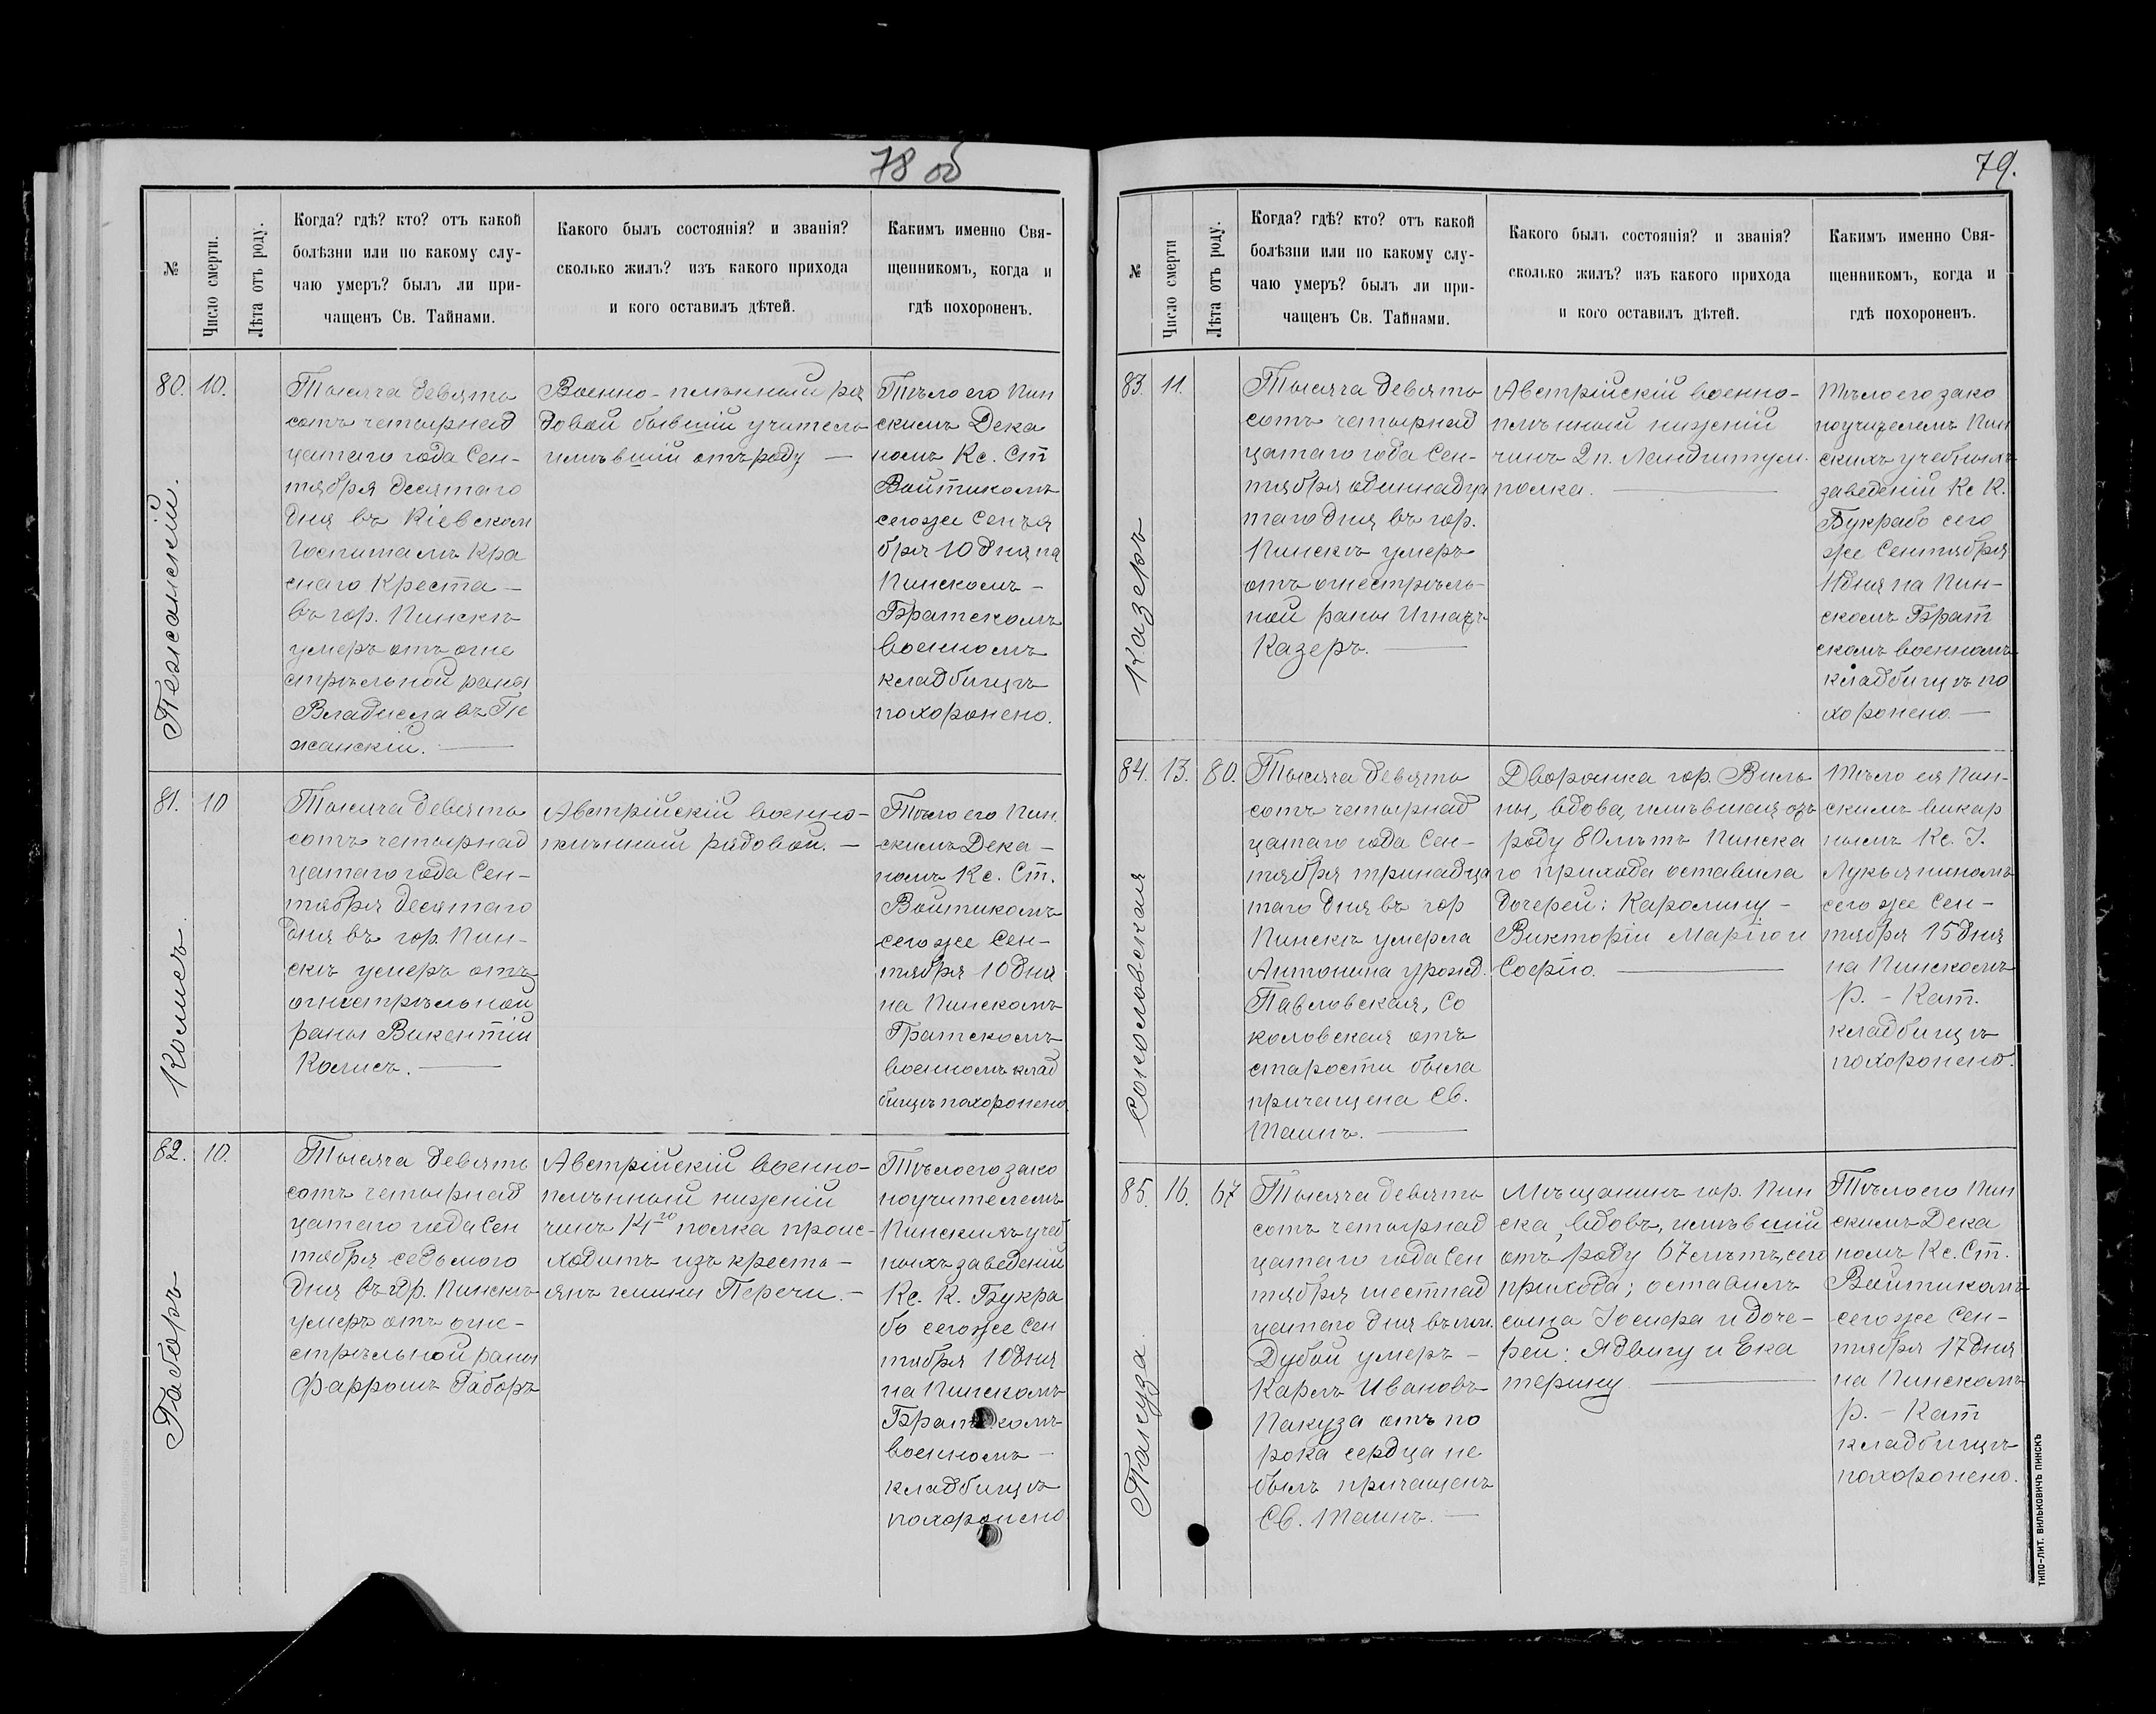 78 об
№
Число смерти.
Лѣта отъ роду.
Когда? гдѣ? кто? отъ какой
болѣзни или по какому слу-
чаю умеръ? былъ ли при-
чащенъ Св. Тайнами.
Какого былъ состоянія? и званія?
сколько жилъ? изъ какого прихода
и кого оставилъ дѣтей.
Какимъ именно Свя-
щенникомъ, когда и
гдѣ похороненъ.
80.
10.
Пежанскій.
Тысяча девять
сотъ четырнад
цатаго года Сен-
тября десятаго
дня въ Кіевском
Госпиталѣ Кра
снаго Креста —
въ гор. Пинскѣ
умеръ отъ огне
стрѣльной раны
Владиславъ Пе
жанскій. —
Военно-плѣнный ря
довой бывшій учитель
имѣвшій отъ роду —
Тѣло его Пин
скимъ Дека
номъ Кс. Ст
Войтикомъ
сего же Сентя
бря 10 дня на
Пинскомъ —
Братскомъ
военномъ
кладбищѣ
похоронено.
81.
10
Комисъ
Тысяча девять
сотъ четырнад
цатаго года Сен-
тября десятаго
дня въ гор. Пин-
скѣ умеръ отъ
огнестрѣльной
раны Викентій
Комисъ. —
Австрійскій военно-
плѣнный рядовой. —
Тѣло его Пин.
скимъ Дека —
номъ Кс. Ст.
Войтикомъ
сего же Сен-
тября 10 дня
на Пинскомъ
Братскомъ
военномъ клад
бищѣ похоронено.
82.
10.
Габоръ
Тысяча девять
сотъ четырнад
цатаго года Сен
тября седьмого
дня въ гор. Пинскѣ
умеръ отъ огне-
стрѣльной раны
Габоръ
Австрійскій военно-
плѣнный нижній
чинъ 14го полка проис-
ходитъ изъ кресть —
янъ гмины Перечи. —
Тѣло его зако
ноучителемъ
Пинскихъ учеб
ныхъ заведеній
Кс. К. Букра
бо сего же Сен
тября 10 дня
на Пинскомъ
Братскомъ
военномъ —
кладбищѣ
похоронено
79.
№
Число смерти
Лѣта отъ роду.
Когда? гдѣ? кто? отъ какой
болѣзни или по какому слу-
чаю умеръ? былъ ли при-
чащенъ Св. Тайнами.
Какого былъ состоянія? и званія?
сколько жилъ? изъ какого прихода
и кого оставилъ дѣтей.
Какимъ именно Свя-
щенникомъ, когда и
гдѣ похороненъ.
83.
11.
Казеръ
Тысяча девять
сотъ четырнад
цатаго года Сен-
тября одиннадца
таго дня въ гор.
Пинскѣ умеръ
отъ огнестрѣль-
ной раны Игнацъ
Казеръ. —
Австрійскій военно-
плѣнный нижній
чинъ 2 п. Ландштурм.
полка. —
Тѣло его зако
ноучителемъ Пин
скихъ учебныхъ
заведеній Кс К.
Букрабо сего
же Сентября
11 дня на Пин-
скомъ Брат
скомъ военномъ
кладбищѣ по
хоронено. —
84.
13.
80.
Соколовская
Тысяча девять
сотъ четырнад
цатаго года Сен-
тября тринадца
таго дня въ гор
Пинскѣ умерла
Антонина урожд.
Павловская, Со
коловская отъ
старости была
причащена Св.
Таинъ. —
Дворянка гор. Виль
ны, вдова, имѣвшая отъ
роду 80 лѣтъ Пинска
го прихода оставила
дочерей: Каролину —
Викторію Марію и
Софію. —
Тѣло ея Пин-
скимъ викар
нымъ Кс. І.
Лукьяниномъ
сего же Сен-
тября 15 дня
на Пинскомъ
Р. — Кат.
кладбищѣ
похоронено.
85.
16.
67
Пакуза
Тысяча девять
сотъ четырнад
цатаго года Сен
тября шестнад
цатаго дня въ им.
Дубой умеръ —
Карлъ Ивановъ
Пакуза отъ по
рока сердца не
былъ причащенъ
Св. Таинъ. —
Мѣщанинъ гор. Пин
ска, вдовъ, имѣвшій
отъ роду 67 лѣтъ, сего
прихода; оставилъ
сына Іосифа и доче-
рей: Ядвигу и Ека
терину —
Тѣло его Пин
скимъ Дека
номъ Кс. Ст.
Войтикомъ
сего же Сен-
тября 17 дня
на Пинскомъ
Р. — Кат
кладбищѣ
похоронено.
ТИПО-ЛИТ. ВИЛЬКОВИЧЪ ПИНСКЪ